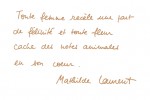 Toute femme recèle une part
de félicité et toute fleur
cache des notes animales
en son coeur.
Mathilde Laurent